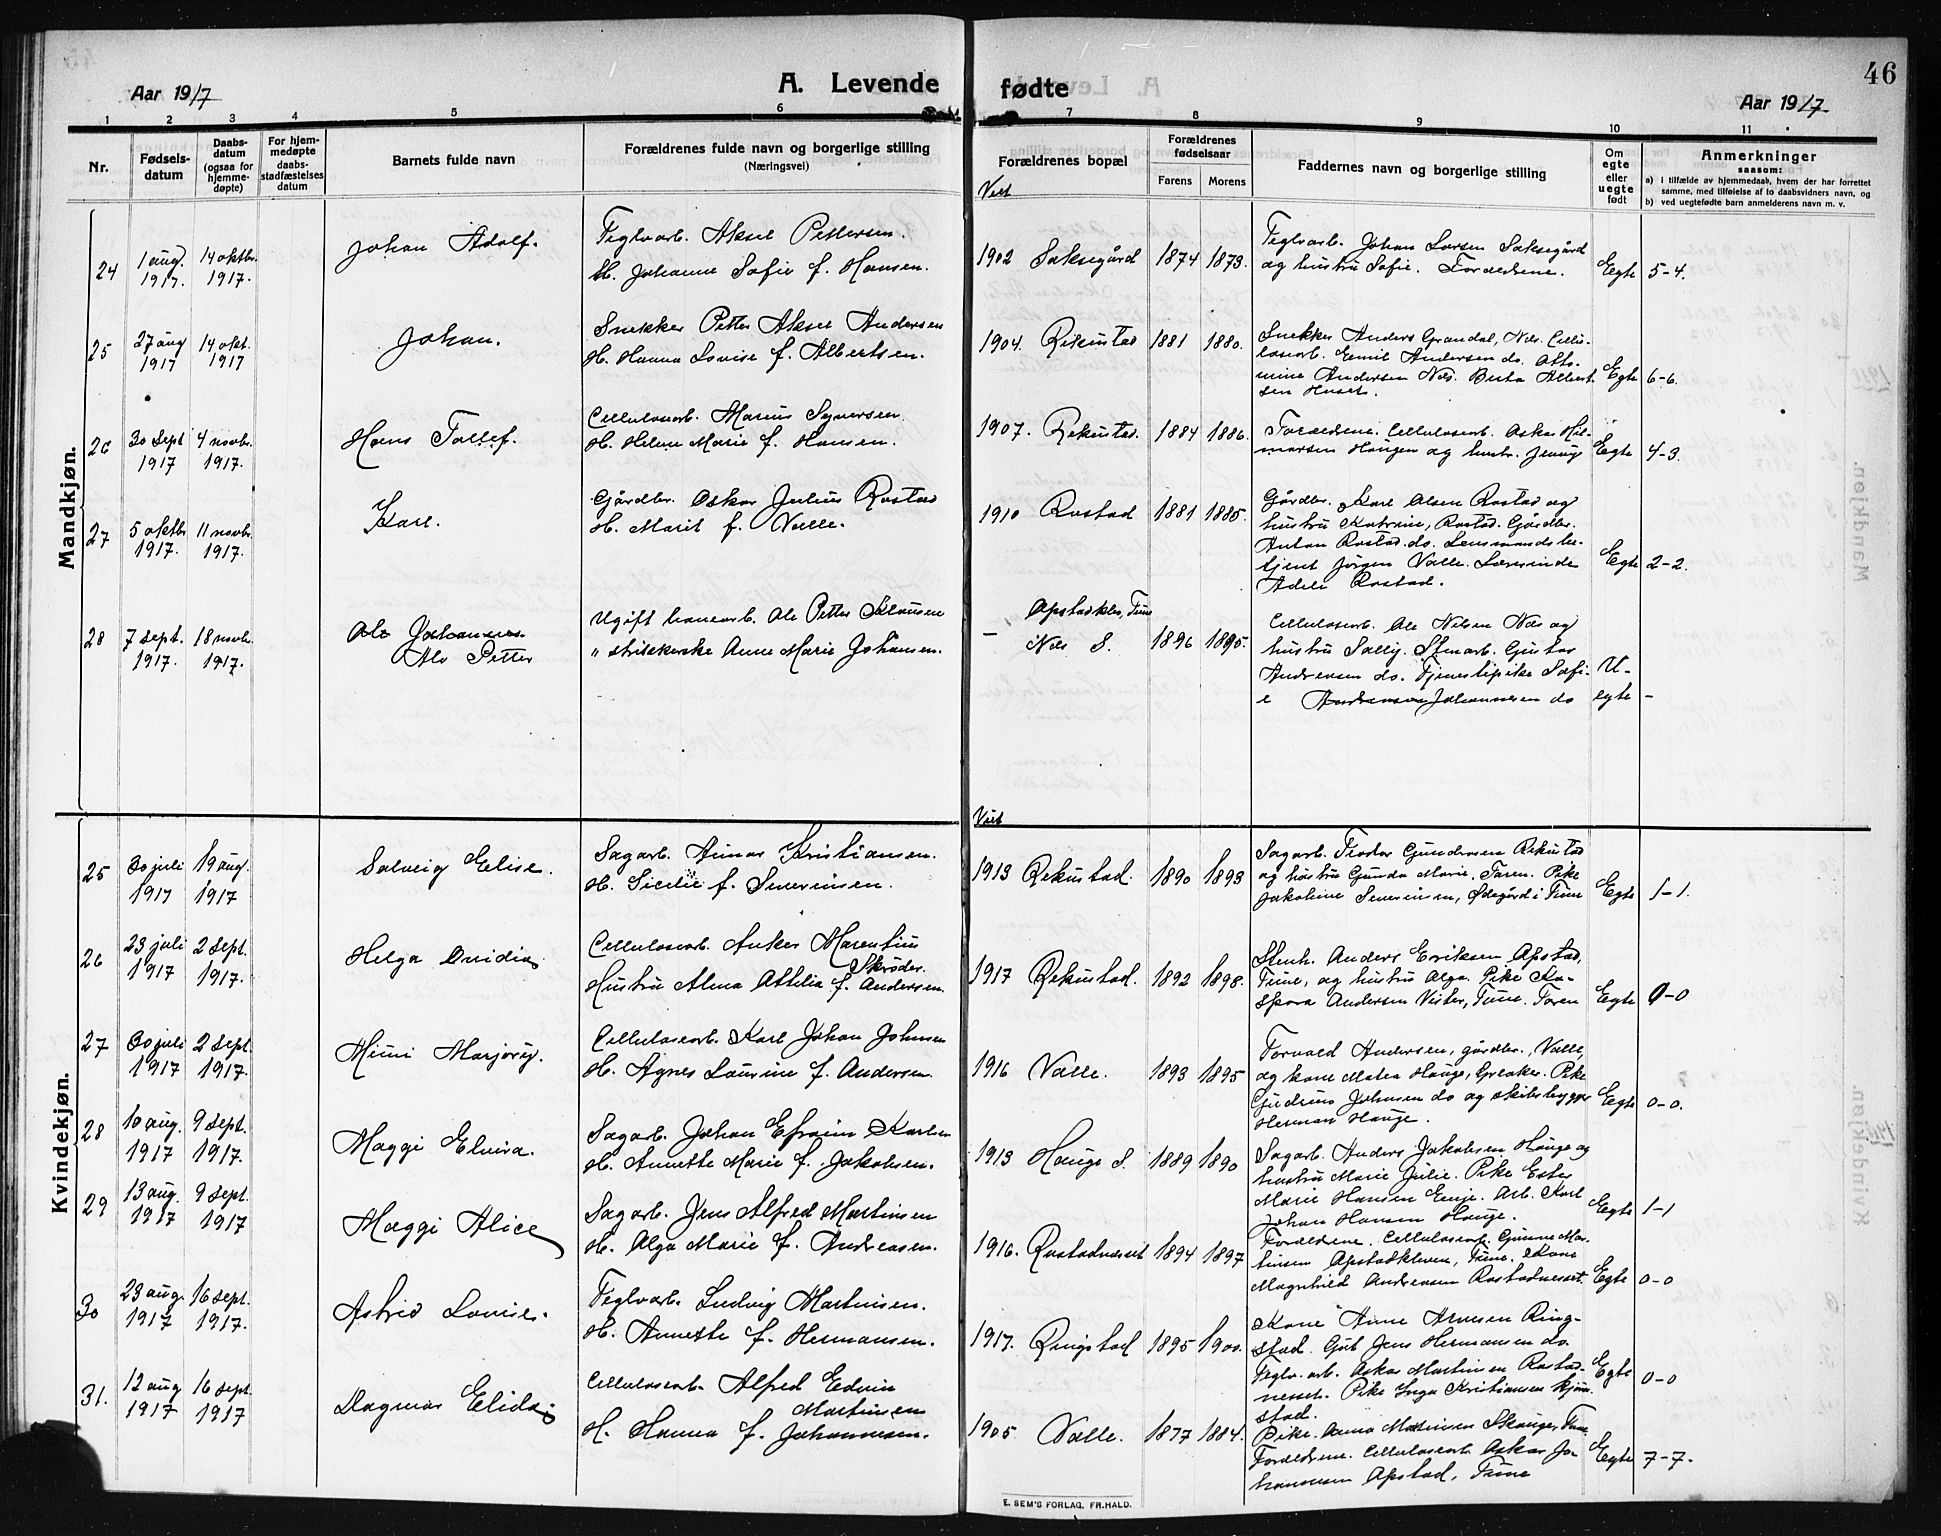 Aar 1917
A. Levende
fødte
Aar 1917
46
1 2 3 4 5 6 7 8 9 10 11
Nr.
Fødsels-
datum
Daabs-
datum
(ogsaa for
hjemme-
døpte)
For hjem-
medøpte
daabs-
stadfæstelses
datum
Barnets fulde navn
Forældrenes fulde navn og borgerlige stilling
(Næringsvei)
Forældrenes bopæl
Viet
Forældrenes
fødselsaar
Farens Morens
Faddernes navn og borgerlige stilling
Om
egte
eller
uegte
født
Anmerkninger
saasom:
a) i tilfælde av hjemmedaab, hvem der har forrettet
samme, med tilføielse af to daabsvidners navn, og
b) ved uegtefødte barn anmelderens navn m. v.
Mandkjøn.
24
1 aug.
1917.
14 oktbr.
1917.
Johan Adolf.
Teglvarb. Aksel Pettersen.
H. Johanne Sofie f. Hansen.
1902 Saksegård 1874 1873.
Teglvarb. Johan Larsen Saksegård
og hustru Sofie. Forældrene.
Egte 5-4.
25
27 aug
1917
14 okt.
1917
Johan.
Snekker Petter Aksel Andersen
H. Hanna Lovise f. Albertsen.
1904. Rekustad 1881 1880.
Snekker Anders Grandal, Nes. Cellu-
losearb. Emil Andersen do. Otto-
mine Andersen Nes. Berta Albert-
sen Huset.
Egte 6-6.
26
30 sept
1917
4 novbr.
1917.
Hans Tollef.
Cellulosearb. Marius Syversen.
H. Helene Marie f. Hansen.
1907. Rekustad. 1884 1886.
Forældrene. Cellulosearb. Oskar Hil-
marsen Haugen og hustr. Jenny
Egte 4-3.
27
5 oktbr
1917.
11 novbr.
1917.
Karl.
Gårdbr. Oskar Julius Rostad
H. Marit f. Valle.
1910 Rostad 1881 1885.
Gårdbr. Karl Olsen Rostad og
hustru Katrine, Rostad. Gårdbr.
Anton Rostad do. Lensmandsbe-
tjent Jørgen Valle. Lærerinde
Adele Rostad.
Egte 2-2.
28
7 sept.
1917.
18 novbr.
1917.
Ole Johannes
Alv Petter
Ugift havnearb. Ole Petter Klausen
" strikkerske Anne Marie Johansen.
– Opstadklev, Tune
Nes S. 1896 1895.
Cellulosearb. Ole Nilsen Nes og
hustru Sally. Stenarb. Gustav
Andreasen do. Tjenestepike Sofi-
e Andreasen Johannesen do
U-
egte –
Viet
Kvindekjøn.
25
30 juli
1917
19 aug.
1917
Solveig Elise.
Sagarb. Einar Kristiansen.
H. Sicelie f. Severinsen.
1913 Rekustad. 1890 1893
Sagarb. Teodor Gundersen Rekustad
og hustru Gunda Marie. Faren. Pike
Jakobine Severinsen, Ødegård i Tune
Egte 1-1.
26
23 juli
1917
2 sept.
1917.
Helga Ovidia
Cellulosearb. Anker Marentius
Skrøder.
Hustru Alma Attilia f. Andersen.
1917 Rekustad. 1892 1898.
Stenh. Anders Eriksen Opstad,
Tune, og hustru Olga. Pike Ka-
spara Andersen Vister, Tune. Faren
Egte 0-0
27
30 juli
1917
2 sept.
1917.
Mimi Marjory.
Cellulosearb. Karl Johan Johnsen
H. Agnes Laurine f. Andersen.
1916 Valle. 1893 1895
Torvald Andersen, gårdbr., Valle,
og kone Matea Hauge, Greaker. Pike
Gudrun Johnsen do og skibsbygger
Herman Hauge.
Egte 0-0.
28
10 aug.
1917
9 sept.
1917.
Maggi Elvira.
Sagarb. Johan Efraim Karlsen
H. Annette Marie f. Jakobsen.
1913 Hauge S. 1889 1890
Sagarb. Anders Jakobsen Hauge og
hustru Marie Julie. Pike Ester
Marie Hansen Enge. Arb. Karl
Johan Hansen Hauge.
Egte 1-1
29
13 aug.
1917
9 sept.
1917
Maggi Alice
Sagarb. Jens Alfred Martinsen
H. Olga Marie f. Andreasen.
1916. Rostadnesset 1894 1897
Forældrene. Cellulosearb. Gunne Mar-
tinsen Opstadkleven, Tune. Kone
Magnhild Andreasen Rostadnesset.
Egte 0-0
30
23 aug.
1917
16 sept.
1917.
Astrid Lovise.
Teglvarb. Ludvig Martinsen.
H. Annette f. Hermansen.
1917. Ringstad 1895 1900.
Kone Anne Arnesen Ring-
stad. Gut Jens Hermansen do.
Teglv. arb. Oskar Martinsen Rostad-
nesset. Pike Inga Kristiansen Kjøn-
stad.
Egte 0-0
31.
12 aug
1917
16 sept.
1917
Dagmar Elida
Cellulosearb. Alfred Edvin
Martinsen
H. Hanna f. Johannesen.
1905 Valle. 1877 1884.
Pike Anna Martinsen Skauge, Tune
Forældrene. Cellulosearb. Oskar Jo-
hannesen Opstad, Tune
Egte 7-7.
E. SEM'S FORLAG, FR.HALD.